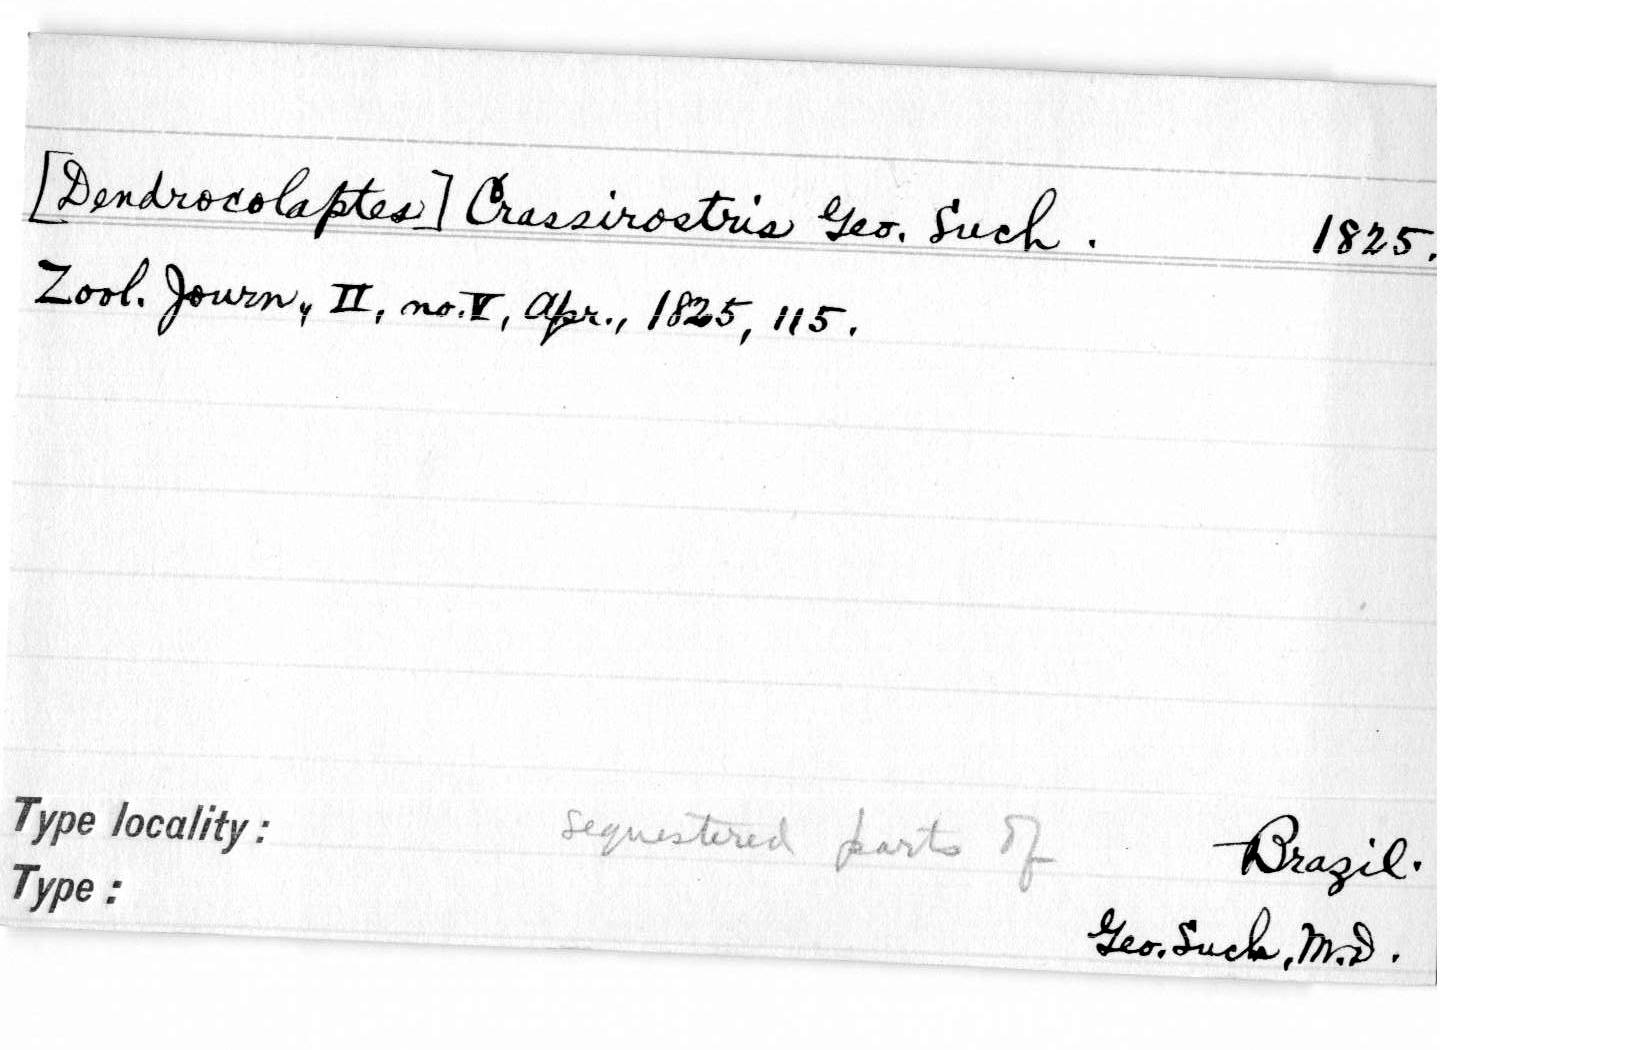 [Dendrocolaptes] Crassirostris Geo. Such. 1825.
Zool. Journ., II, no. V, Apr., 1825, 115.
Type locality: sequestered parts of Brazil.
Type:
Geo. Such, M.D.